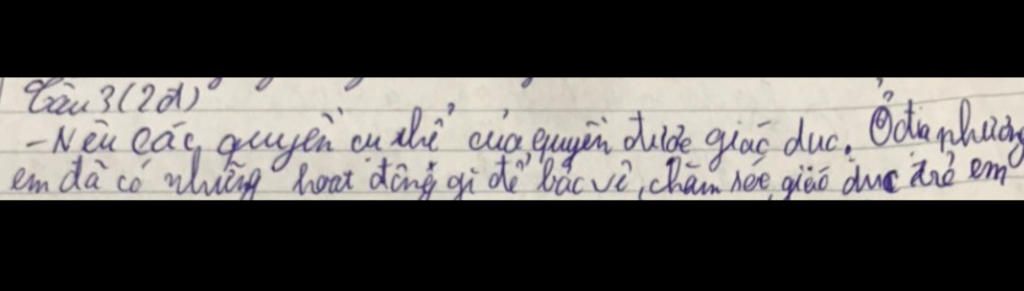 Câu 3 (2đ)
- Nêu các quyền cụ thể của quyền được giáo dục. Ở địa phương
em đã có những hoạt động gì để bảo vệ, chăm sóc, giáo dục trẻ em